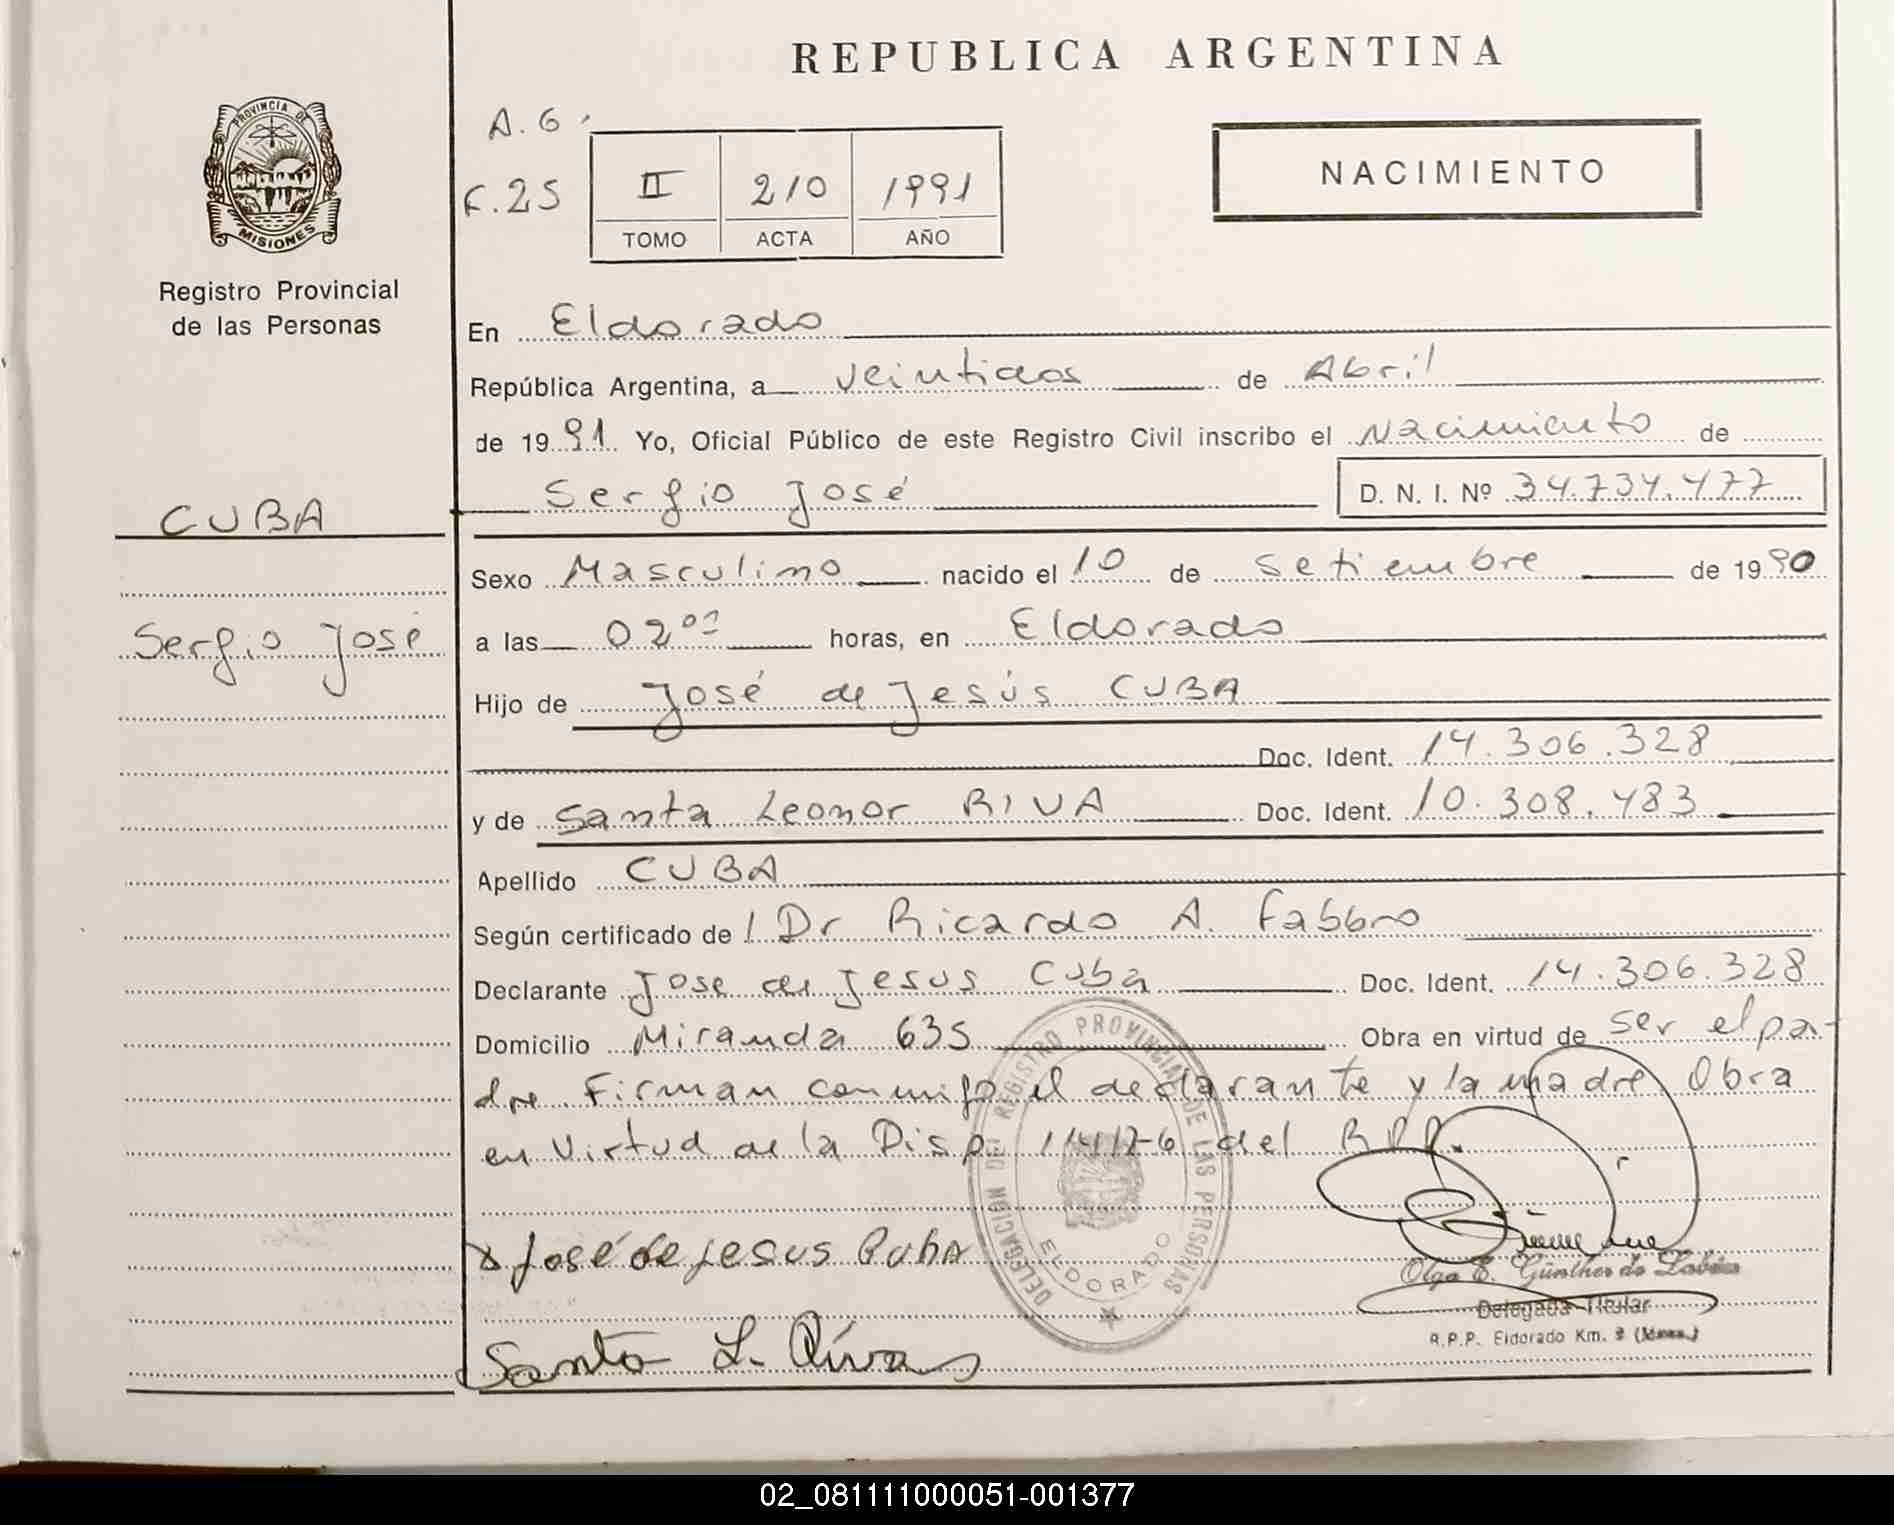 REPUBLICA ARGENTINA
PROVINCIA DE
MISIONES
Registro Provincial
de las Personas
A.G.
F.25
II 210 1991
TOMO ACTA AÑO
NACIMIENTO
En Eldorado
República Argentina, a veintidos de Abril
de 1991 Yo, Oficial Público de este Registro Civil inscribo el Nacimiento de
Sergio José D. N. I. Nº 34.734.477
CUBA
Sergio José
Sexo Masculino nacido el 10 de Setiembre de 1990
a las 02 horas, en Eldorado
Hijo de José de Jesús CUBA
Doc. Ident. 14.306.328
y de Santa Leonor RIVA Doc. Ident. 10.308.483
Apellido CUBA
Según certificado de Dr Ricardo A. Fabbro
Declarante Jose de Jesus Cuba Doc. Ident. 14.306.328
Domicilio Miranda 635 Obra en virtud de ser el pa-
dre Firman conmigo el declarante y la madre Obra
en Virtud de la Disp. del R.P.P.
José de Jesus Cuba
Santa L. Rivas
DELEGACION DEL REGISTRO PROVINCIAL DE LAS PERSONAS
ELDORADO
Olga E. Günther de
Delegada Titular
R.P.P. Eldorado Km.
02_081111000051-001377